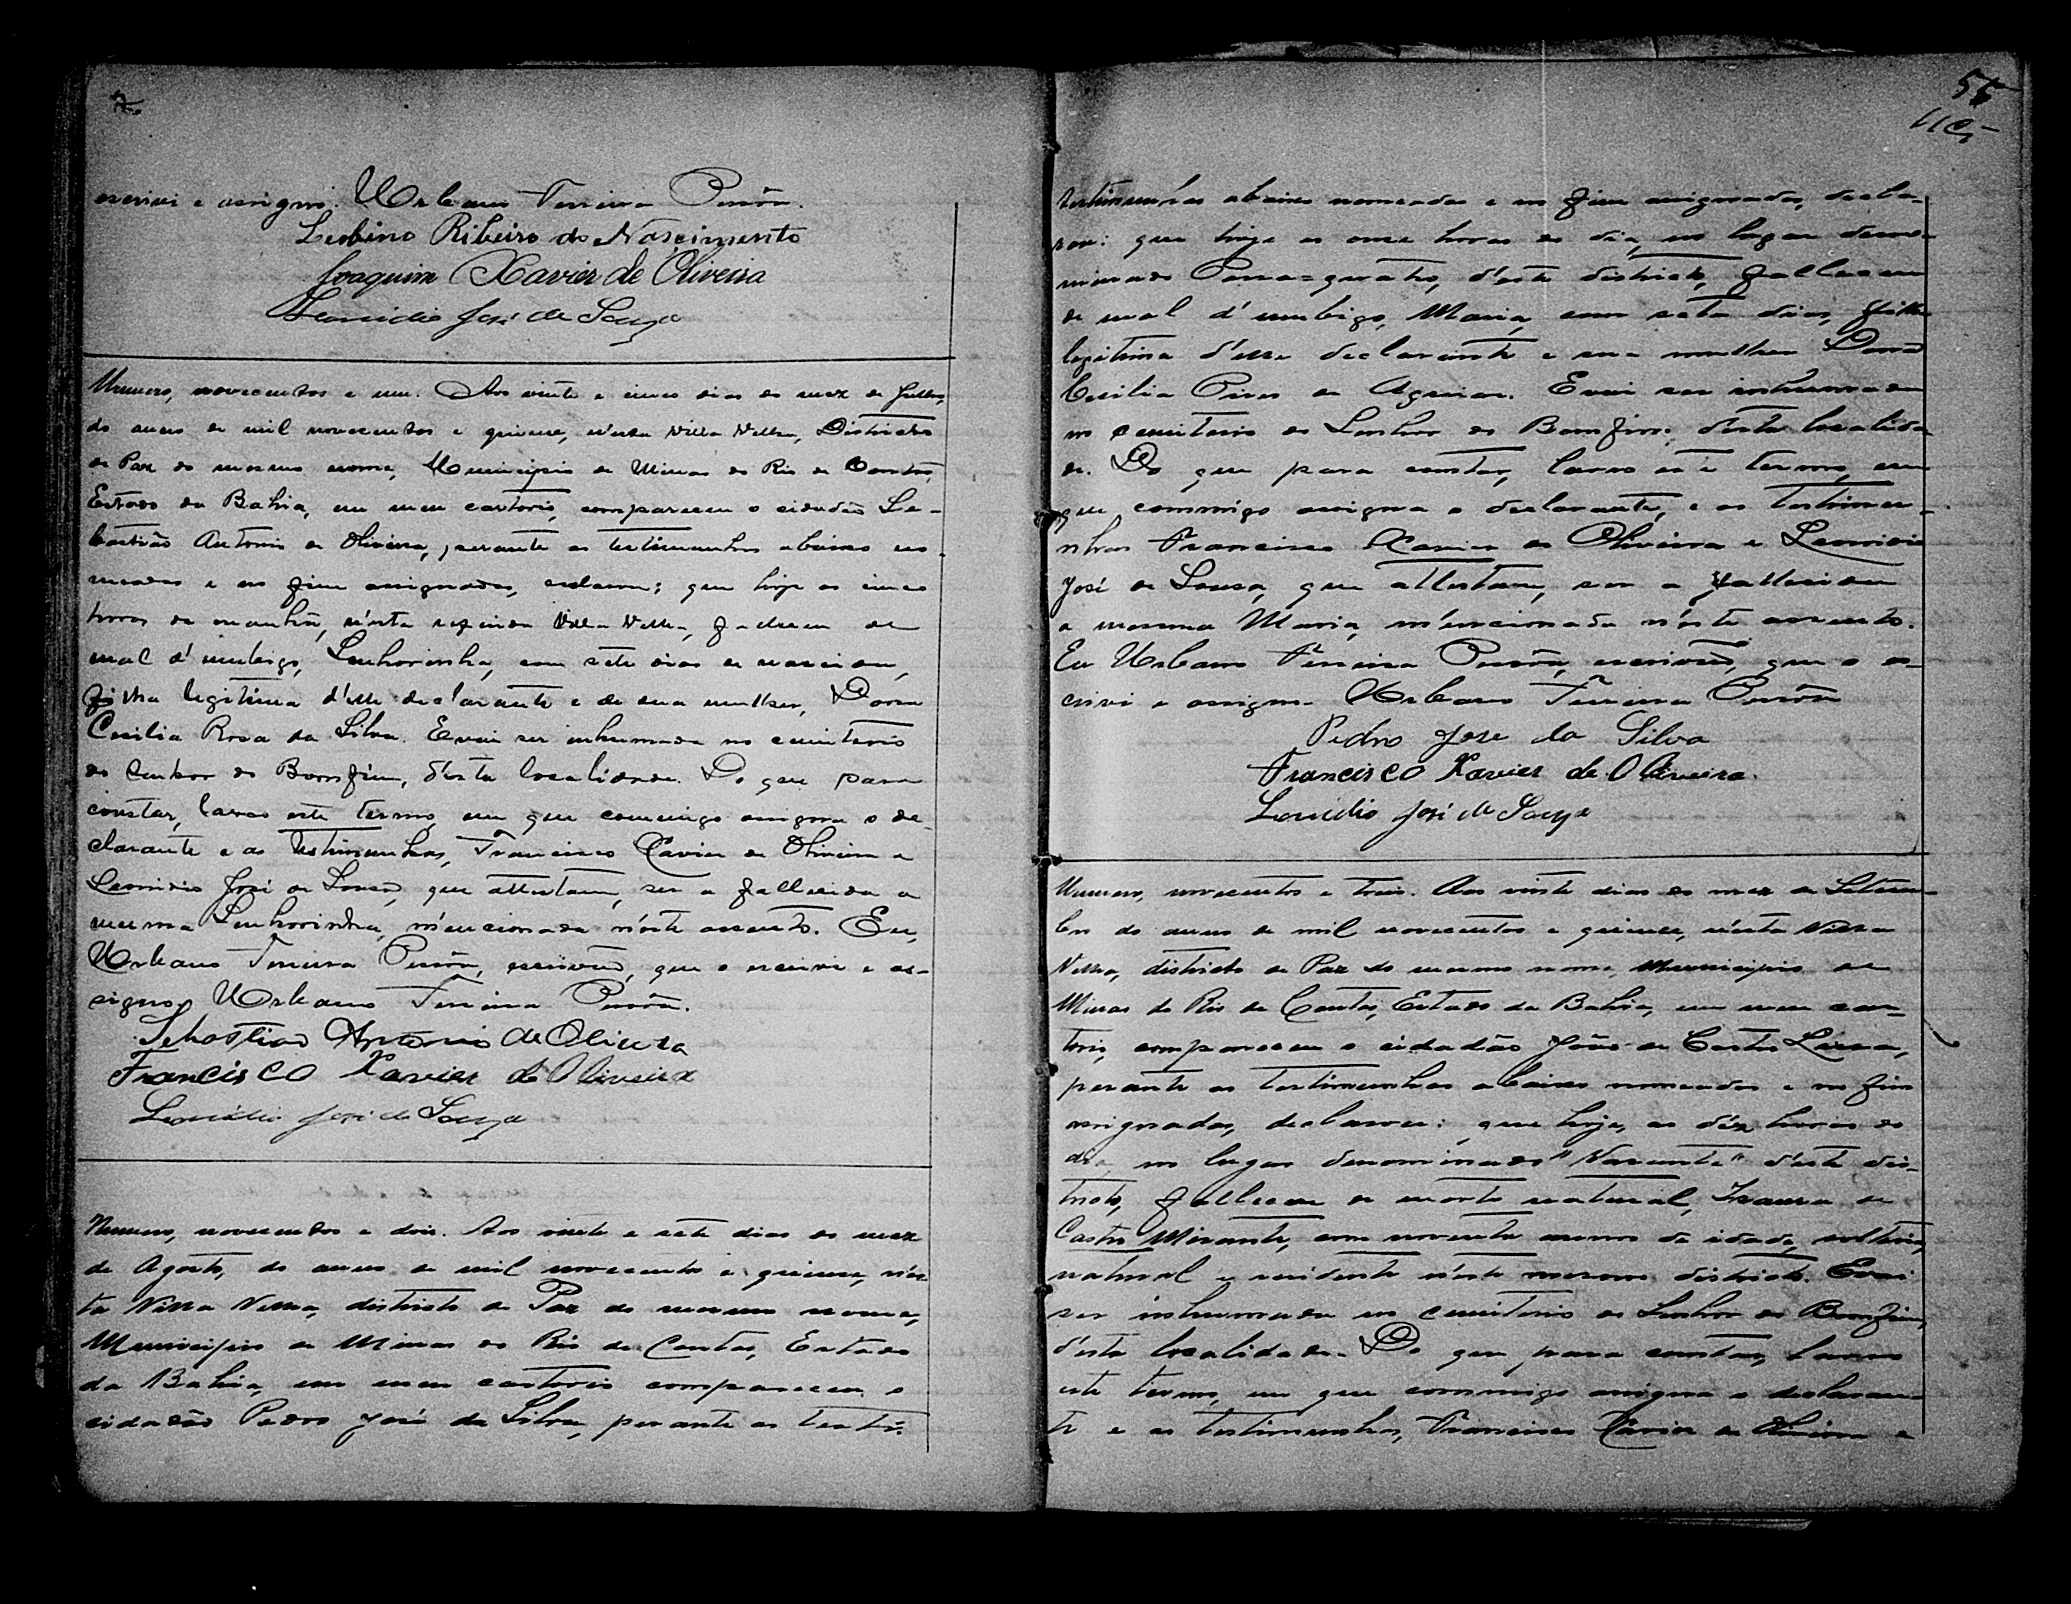 escrivi e assigno. Urbano Ferreira
Leobino Ribeiro do Nascimento
Joaquim Xavier de Oliveira
Leonidio José de Souza
Numero, novecentos e um. Aos vinte e cinco dias do mez de Julho,
do anno de mil novecentos e quinze, n'esta Villa Velha, Districto
de Paz do mesmo nome, Municipio de Minas do Rio de Contas,
Estado da Bahia, em meu cartorio, compareceu o cidadão Se-
bastião Antonio de Oliveira, perante as testimunhas abaixo no-
meadas e no fim assignadas, declarou: que hoje as cinco
horas da manhã, n'esta referida Villa Velha, falleceu de
mal d'umbigo, Senhorinha, com sete dias de nascida,
filha legitima d'elle declarante e de sua mulher, Dona
Cecilia Rosa da Silva. E vai ser inhumada no cemiterio
do Senhor do Bomfim, d'esta localidade. Do que para
constar, lavro este termo, em que commigo assigna o de-
clarante e as testimunhas, Francisco Xavier de Oliveira e
Leonidio José de Souza, que attestam, ser a fallecida a
mesma Senhorinha, mencionada n'este assento. Eu,
Urbano Ferreira escrivão, que o escrivi e as-
signo. Urbano Ferreira
Sebastião Antonio de Oliveira
Francisco Xavier de Oliveira
Leonidio José de Souza
Numero, novecentos e dois. Aos vinte e sete dias do mez
de Agosto, do anno de mil novecentos e quinze, n'es-
ta Villa Velha, districto de Paz do mesmo nome,
Municipio de Minas do Rio de Contas, Estado
da Bahia, em meu cartorio compareceu o
cidadão Pedro José da Silva, perante as testi-
55
testimunhas abaixo nomeadas e no fim assignadas, decla-
rou: que hoje as onze horas do dia, no lugar deno-
minado d'este districto, falleceu
de mal d'umbigo, Maria, com sete dias, filha
legitima d'elle declarante e sua mulher Dona
Cecilia Pires de Aguiar. E vai ser inhumada
no cemiterio do Senhor do Bomfim, d'esta localida-
de. Do que para constar, lavro este termo, em
que commigo assigna o declarante, e as testimu-
nhas Francisco Xavier de Oliveira e Leonidio
José de Souza, que attestam, ser a fallecida
a mesma Maria, mencionada n'este assento.
Eu Urbano Ferreira escrivão, que o es-
crivi e assigno. Urbano Ferreira
Pedro Jose da Silva
Francisco Xavier de Oliveira
Leonidio José de Souza
Numero, novecentos e tres. Aos vinte dias do mez de Setem-
bro do anno de mil novecentos e quinze, n'esta Villa
Velha, districto de Paz do mesmo nome, Municipio de
Minas do Rio de Contas, Estado da Bahia, em meu car-
torio, compareceu o cidadão João de Castro
perante as testimunhas abaixo nomeadas e no fim
assignadas, declarou: que hoje, as dez horas do
dia, no lugar denominado "Vasante" d'este dis-
tricto, falleceu de morte natural, de
Castro com noventa annos de idade, solteira,
natural e residente n'este mesmo districto. E vai
ser inhumada no cemiterio do Senhor do Bomfim,
d'esta localidade. Do que para constar, lavro
este termo, em que commigo assigna o declaran-
te e as testimunhas, Francisco Xavier de Oliveira e